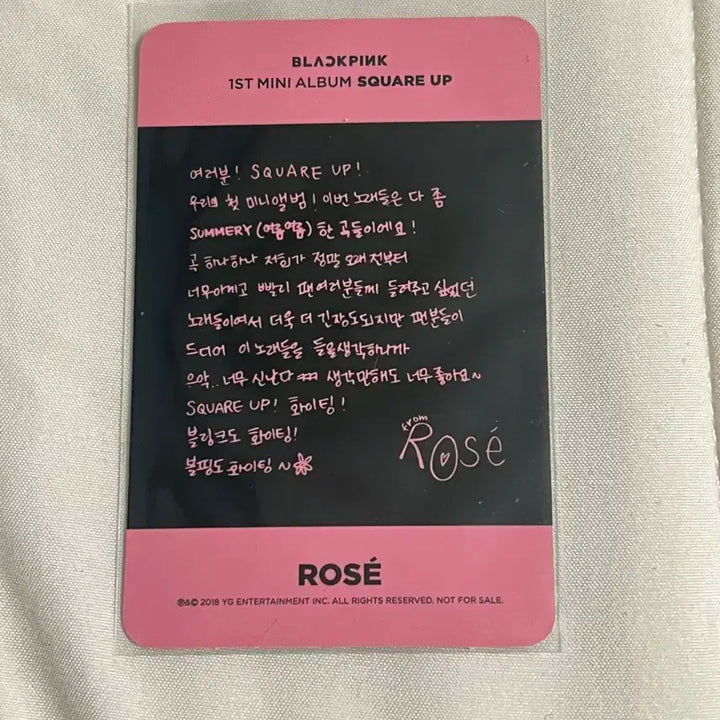 BLACKPINK
1ST MINI ALBUM SQUARE UP
여러분! SQUARE UP!
우리의 첫 미니앨범! 이번 노래들은 다 좀
SUMMERY (여름여름) 한 곡들이에요!
곡 하나하나 저희가 정말 오래 전부터
너무아끼고 빨리 팬여러분들께 들려주고 싶었던
노래들이여서 더욱 더 긴장도되지만 팬분들이
드디어 이 노래들을 들을생각하니까
으악.. 너무 신난다 ㅋㅋㅋ 생각만해도 너무 좋아요~
SQUARE UP! 화이팅!
블링크도 화이팅!
블핑도 화이팅~
from
Rosé
ROSÉ
℗&© 2018 YG ENTERTAINMENT INC. ALL RIGHTS RESERVED. NOT FOR SALE.